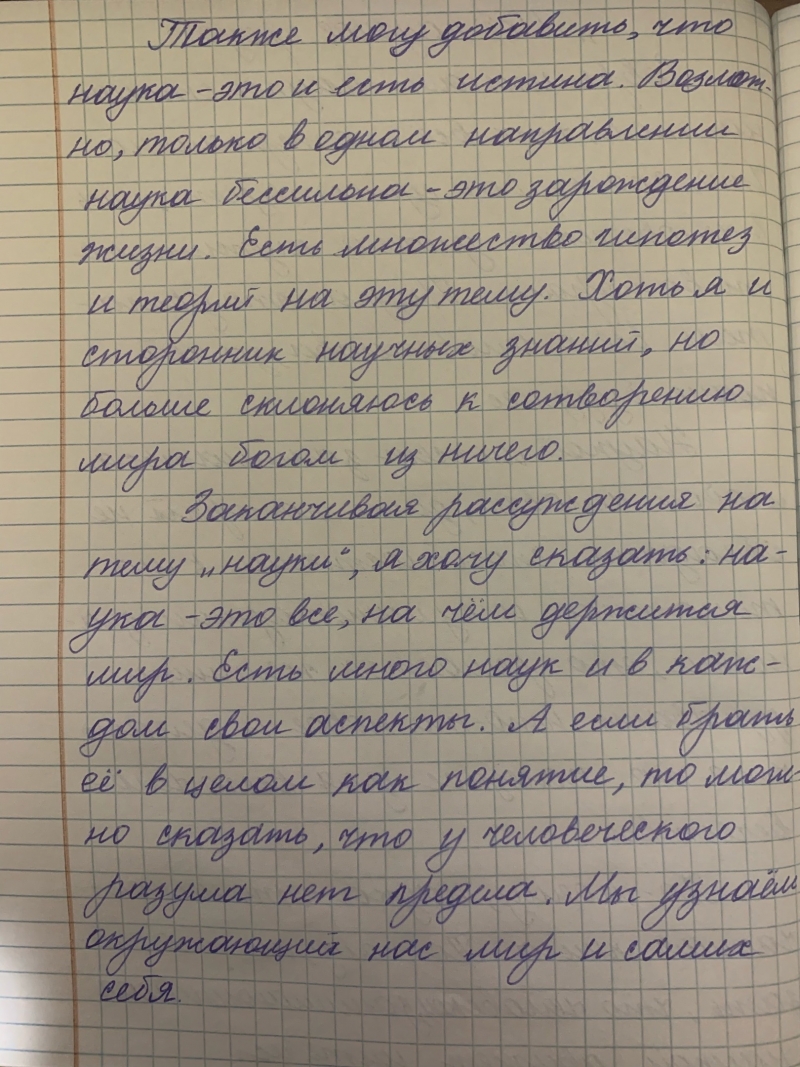 Также могу добавить, что
наука - это и есть истина. Возмож-
но, только в одном направлении
наука бессильна - это зарождение
жизни. Есть множество гипотез
и теорий на эту тему. Хоть я и
сторонник научных знаний, но
больше склоняюсь к сотворению
мира богом из ничего.
Заканчивая рассуждения на
тему „науки“, я хочу сказать: на-
ука - это все, на чём держится
мир. Есть много наук и в каж-
дом свои аспекты. А если брать
её в целом как понятие, то мож-
но сказать, что у человеческого
разума нет предела. Мы узнаём
окружающий нас мир и самих
себя.